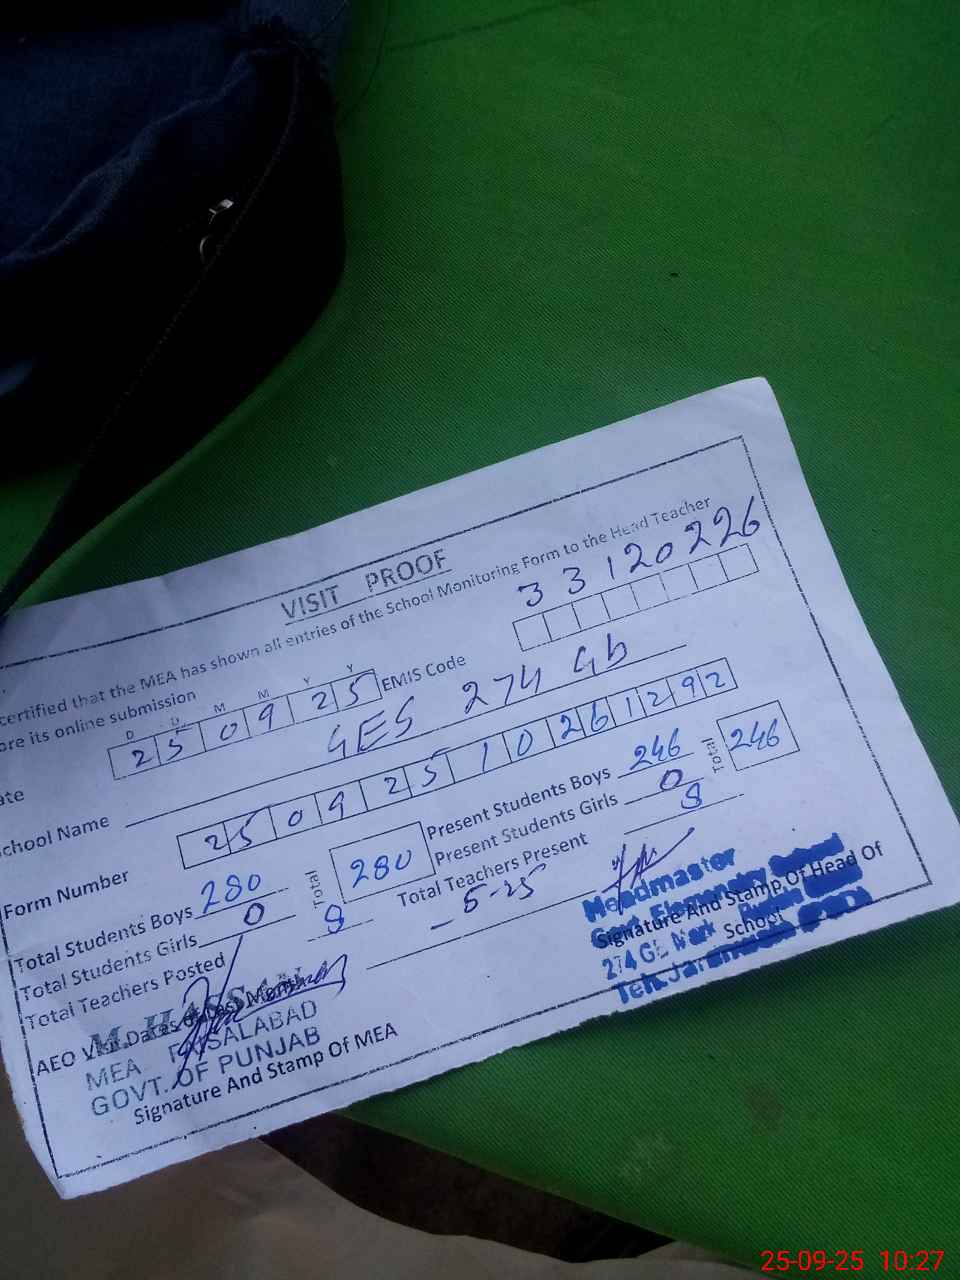 VISIT PROOF
certified that the MEA has shown all entries of the School Monitoring Form to the Head Teacher
ore its online submission
D D M M Y Y
ate 25 09 25 EMIS Code 33120226
chool Name GES 274 Gb
Form Number 25092510261292
Total Students Boys 280 Total 280 Present Students Boys 246 Total 246
Total Students Girls 0 Present Students Girls 0
Total Teachers Posted 9 Total Teachers Present 8
AEO Visit Dates of Last Month 5-25
M. HASSAN
MEA FAISALABAD
GOVT. OF PUNJAB
Signature And Stamp Of MEA
Headmaster
Govt. Elementary School
Signature And Stamp Of Head Of
School
274 GB
Teh.
25-09-25 10:27